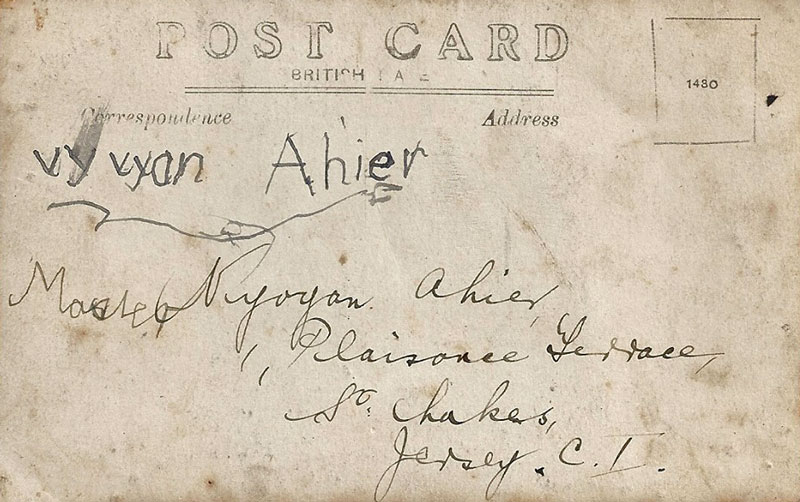 POST CARD
BRITISH
1480
Correspondence
Address
vyvyan Ahier
Master Vyvyan Ahier,
1, Plaisance Terrace,
Jersey. C. I.